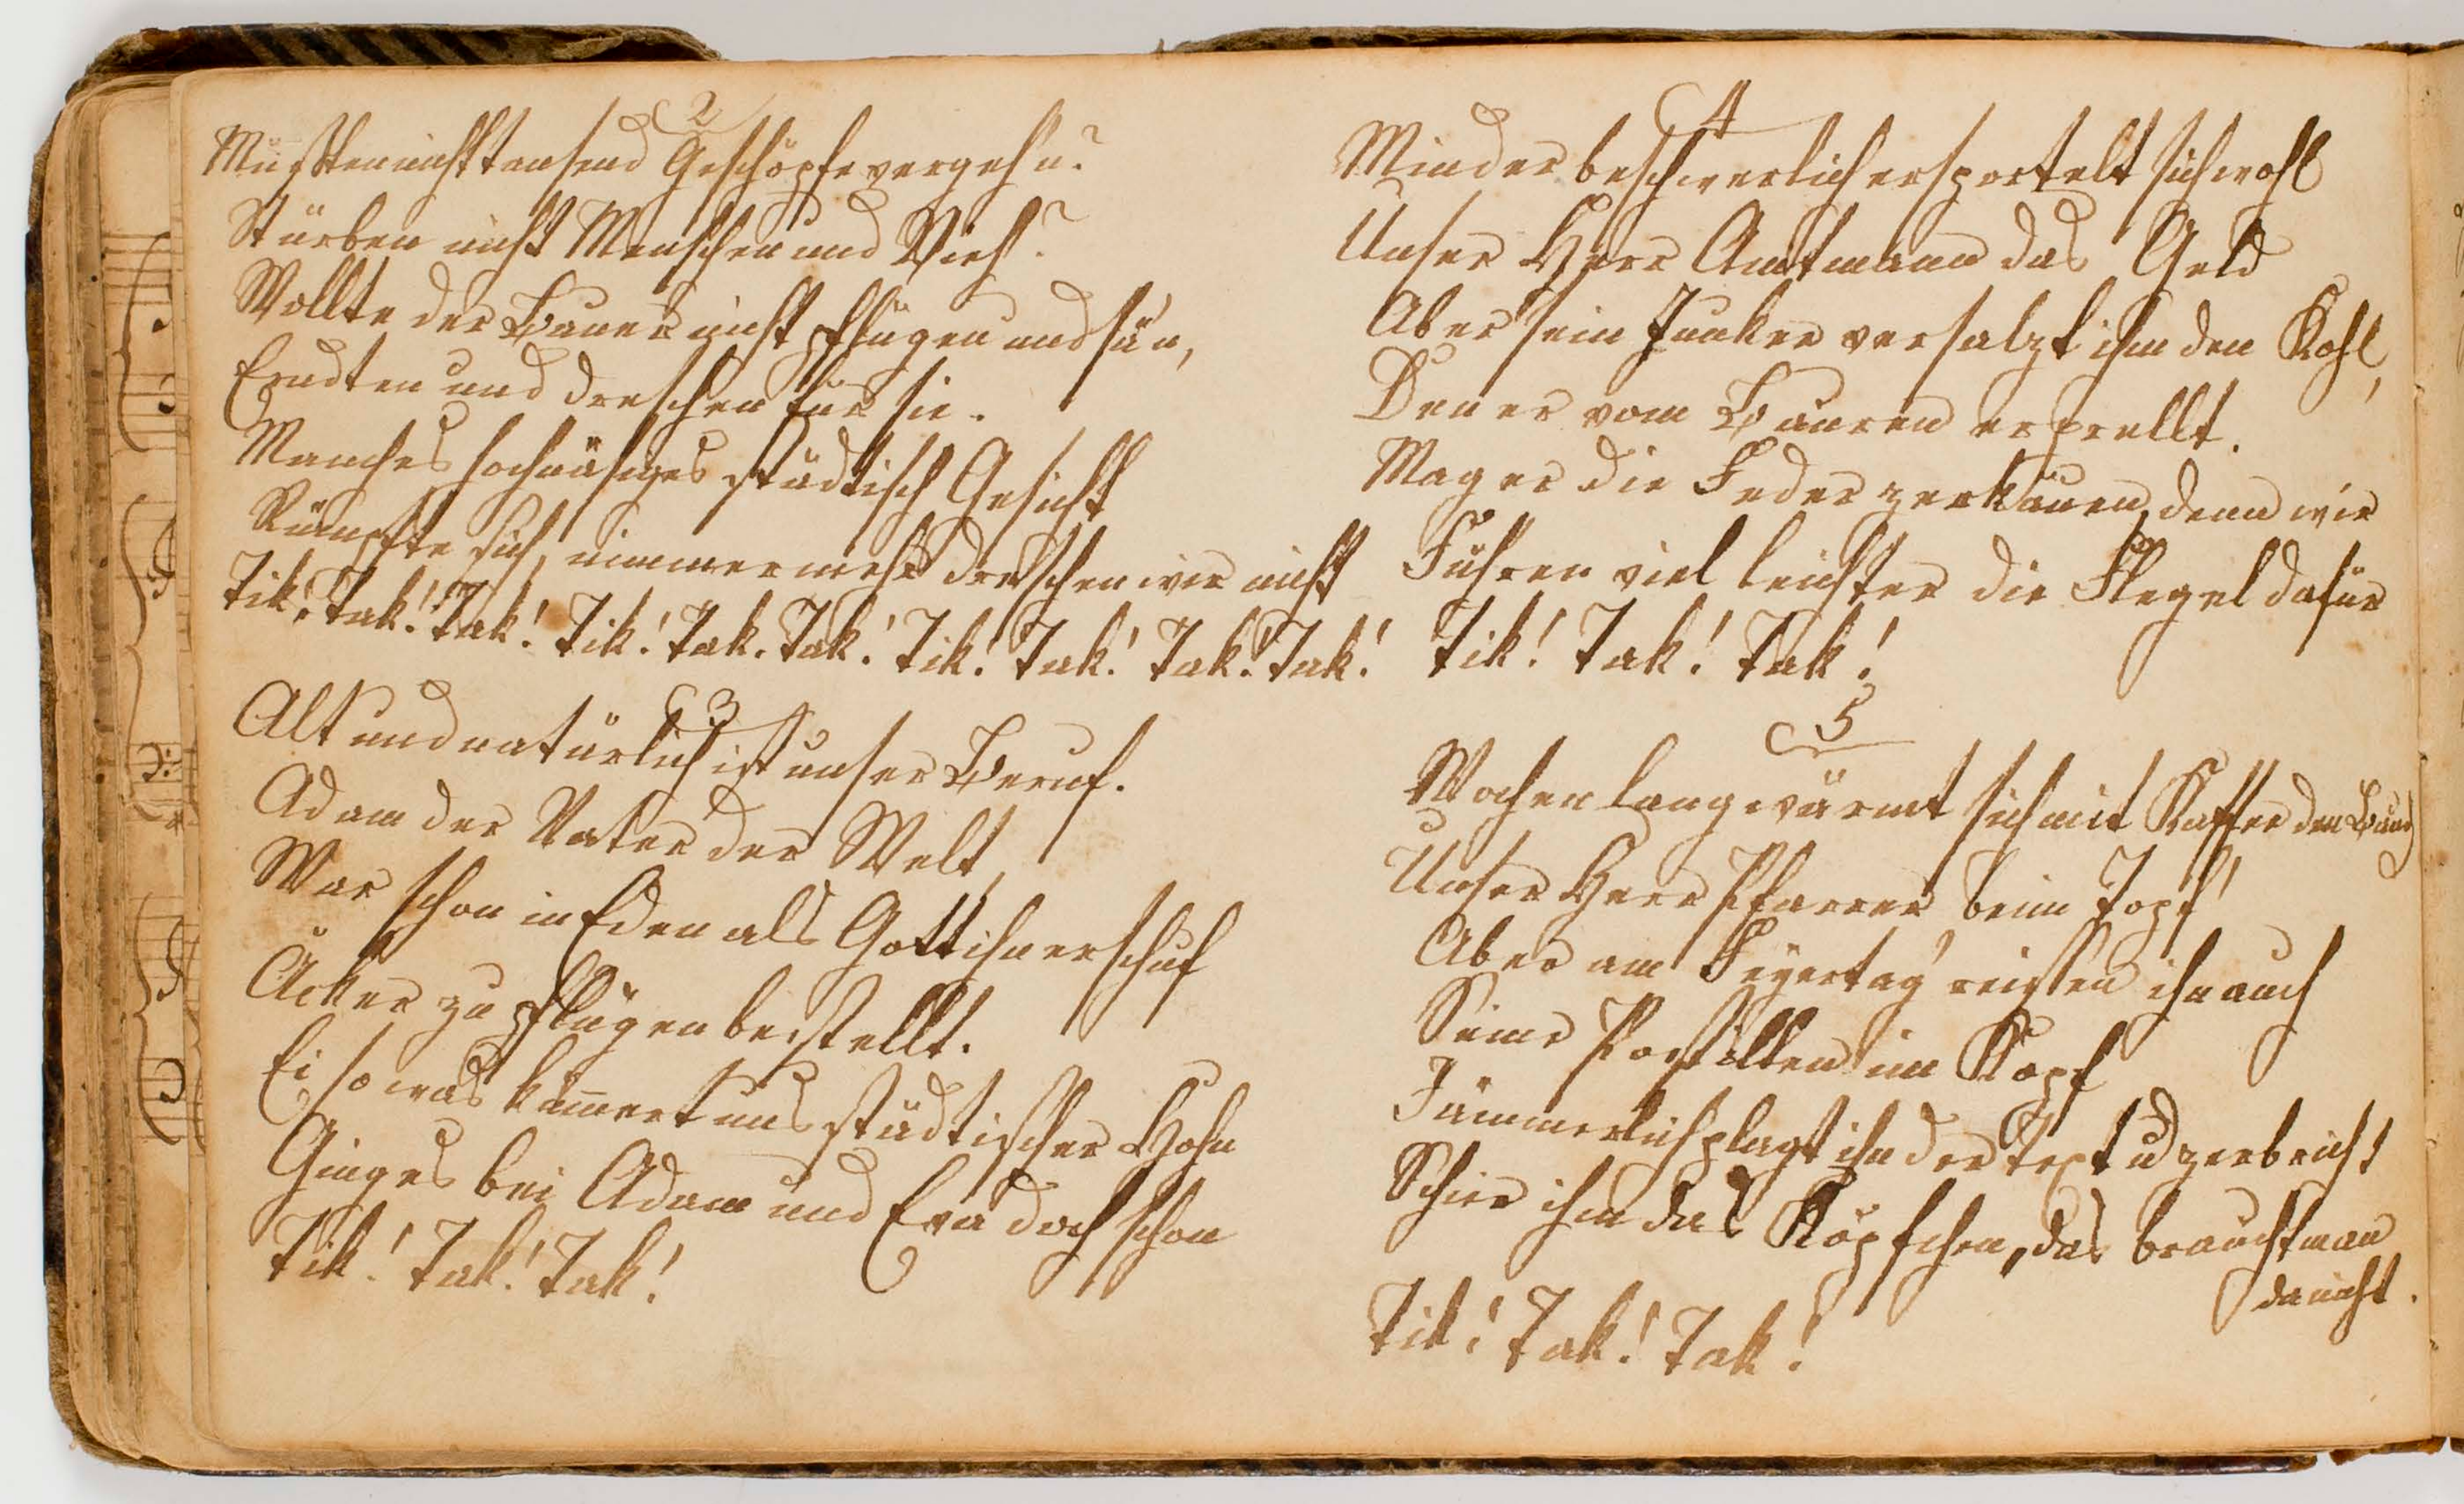 2
Müßten nicht tausend Geschöpfe vergeh'n?
Stürben nicht Menschen und Vieh?
Wollte der Bauer nicht pflügen und sä'n,
Erndten und dreschen für sie.
Manches hochnäsiges städtisch Gesicht
Rümpfte sich, nimmermehr dreschen wir nicht
Tik! Tak! Tak! Tik! Tak. Tak! Tik! Tak! Tak! Tak!
3
Alt und natürlich ist unser Beruf.
Adam der Vater der Welt,
War schon in Eden als Gott ihn erschuf
Äcker zu pflügen bestellt.
Ei so was kümert uns städtischer Hohn
Ging es bei Adam und Eva doch schon
Tik! Tak! Tak!
4
Minder beschwerlich ersportelt sich wohl
Unser Herr Amtmann das Geld
Aber sein Junker versalzt ihm den Kohl,
Den er vom Bauren erprellt.
Mag er die Feder zerkäuen, denn wir
Führen viel leichter die Flegel dafür
Tik! Tak! Tak!
5
Wochen lang wärmt sich mit Kaffee den Bauch
Unser Herr Pfarrer beim Topf
Aber am Feyertag reißen ihn auch
Seine Postillen im Kopf
Jämmerlich plagt ihn der Text u zerbricht
Schier ihm das Köpfchen, das braucht man
da nicht.
Tik! Tak! Tak!